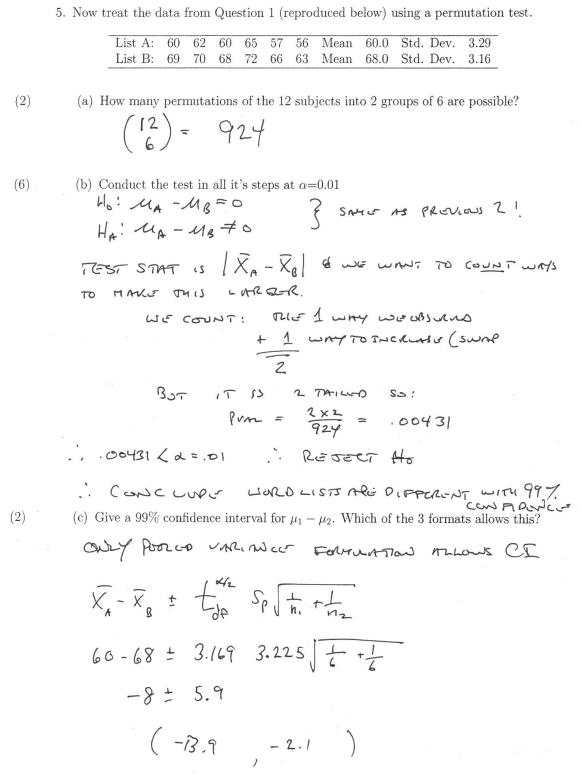 5. Now treat the data from Question 1 (reproduced below) using a permutation test.
List A: 60 62 60 65 57 56 Mean 60.0 Std. Dev. 3.29
List B: 69 70 68 72 66 63 Mean 68.0 Std. Dev. 3.16
(2) (a) How many permutations of the 12 subjects into 2 groups of 6 are possible?
(12 6) = 924
(6) (b) Conduct the test in all it's steps at α=0.01
H₀: μ_A - μ_B = 0
H_A: μ_A - μ_B ≠ 0 } SAME AS PREVIOUS 2!
TEST STAT IS |X̄_A - X̄_B| & WE WANT TO COUNT WAYS
TO MAKE THIS LARGER.
WE COUNT: THE 1 WAY WE OBSERVED
+ 1 WAY TO INCREASE (SWAP
2
BUT IT IS 2 TAILED SO:
PVAL = 2×2/924 = .00431
∴ .00431 < α = .01 ∴ REJECT H₀
∴ CONCLUDE WORD LISTS ARE DIFFERENT WITH 99%
CONFIDENCE
(2) (c) Give a 99% confidence interval for μ₁ − μ₂. Which of the 3 formats allows this?
ONLY POOLED VARIANCE FORMULATION ALLOWS CI
X̄_A - X̄_B ± t_df^α/2 Sp √(1/n₁ + 1/n₂)
60-68 ± 3.169 3.225 √(1/6 + 1/6)
-8 ± 5.9
(-13.9, -2.1)